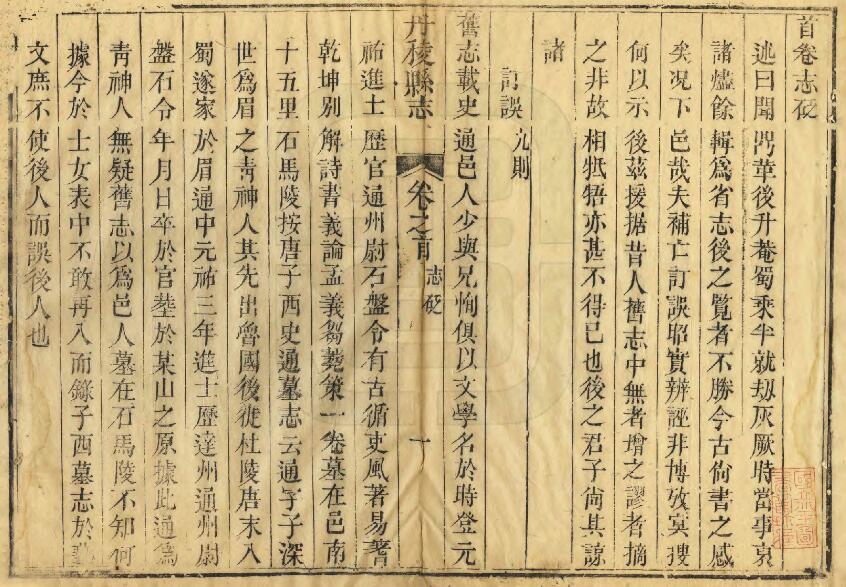 首卷志砭
述曰聞咒華後升菴蜀乘半就刼灰厥時當事哀
諸燼餘輯爲省志後之覽者不勝今古尙書之感
矣况下邑哉夫補亡訂誤昭實辨誣非博攷冥搜
何以示後茲援据昔人舊志中無者增之謬者摘
之非故相牴牾亦甚不得已也後之君子尙其諒
諸
訂誤九則
舊志載史通邑人少與兄恂俱以文學名於時登元
丹稜縣志 卷之首 志砭 十
祐進士歷官通州尉石盤令有古循吏風著易蓍
乾坤別解詩書義論孟義芻蕘策一卷墓在邑南
十五里石馬陵按唐子西史通墓志云通字子深
世爲眉之靑神人其先出魯國後徙杜陵唐末入
蜀遂家於眉通中元祐三年進士歷達州通州尉
盤石令年月日卒於官塟於某山之原據此通爲
靑神人無疑舊志以爲邑人墓在石馬陵不知何
據今於士女表中不敢再入而錄子西墓志於
文庶不使後人而誤後人也